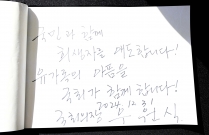 국민과 함께
희생자를 애도합니다!
유가족의 아픔을
국회가 함께 합니다!
2024. 12. 31
국회의장 우원식